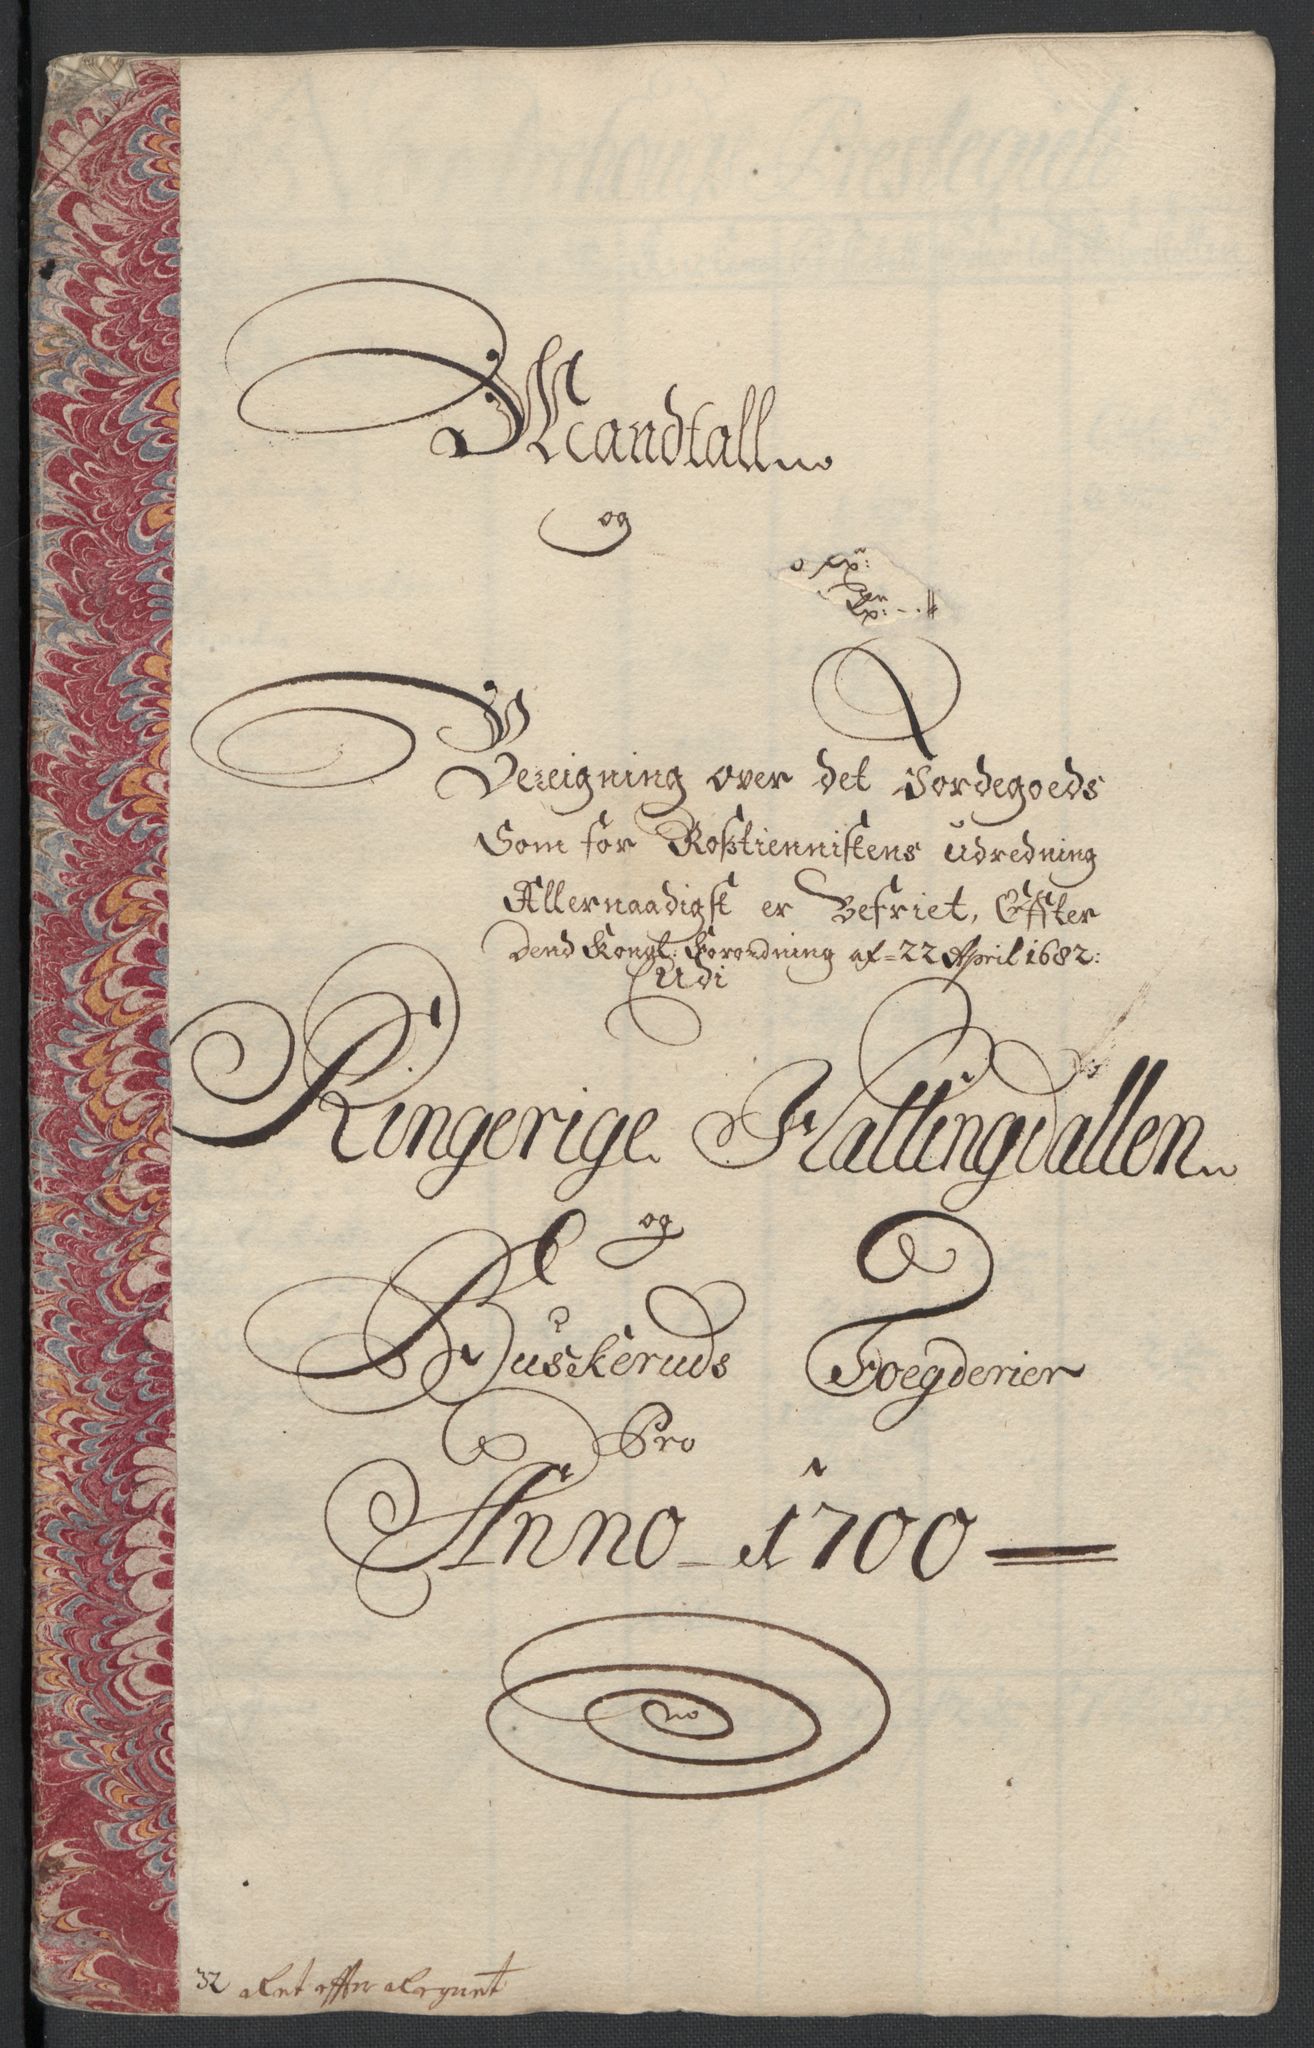 Mandtall
og
Bereigning over det Jordegoeds
Som for Rosstiennistens Udredning
Allernaadigst er Befriet, Effter
Dend Kongl: Forordning af 22 April 1682:
Udi
Ringerige Hallingdallen
og
Buskeruds Foegderier
Pro
Anno 1700
32